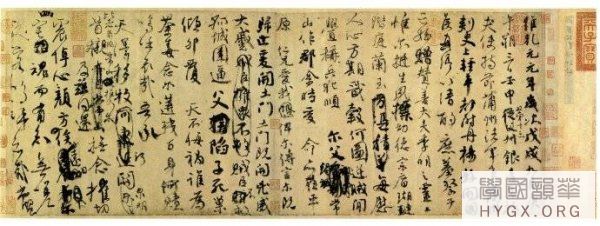 維乾元元年歲次戊戌九月庚
午朔三日壬申第十三叔銀青光祿
夫使持節蒲州諸軍事蒲州
刺史上輕車都尉丹楊縣開國
侯真卿以清酌庶羞祭于亡姪
贈贊善大夫季明之靈曰
惟爾挺生夙標幼德宗廟瑚璉
階庭蘭玉每慰
人心方期戩穀何圖逆賊閒
釁稱兵犯順爾父竭誠常
山作郡余時受命亦在平
原仁兄愛我俾爾傳言爾既
歸止爰開土門土門既開凶威
大蹙賊臣不救
孤城圍逼父陷子死巢
傾卵覆天不悔禍誰為
荼毒念爾遘殘百身何贖
嗚呼哀哉吾承
天澤移牧河關泉明
首櫬及茲同還撫念摧切
震悼心顏方俟遠日
魂而有知無嗟
久客嗚呼哀哉尚饗
學國韻華
HYGX.ORG